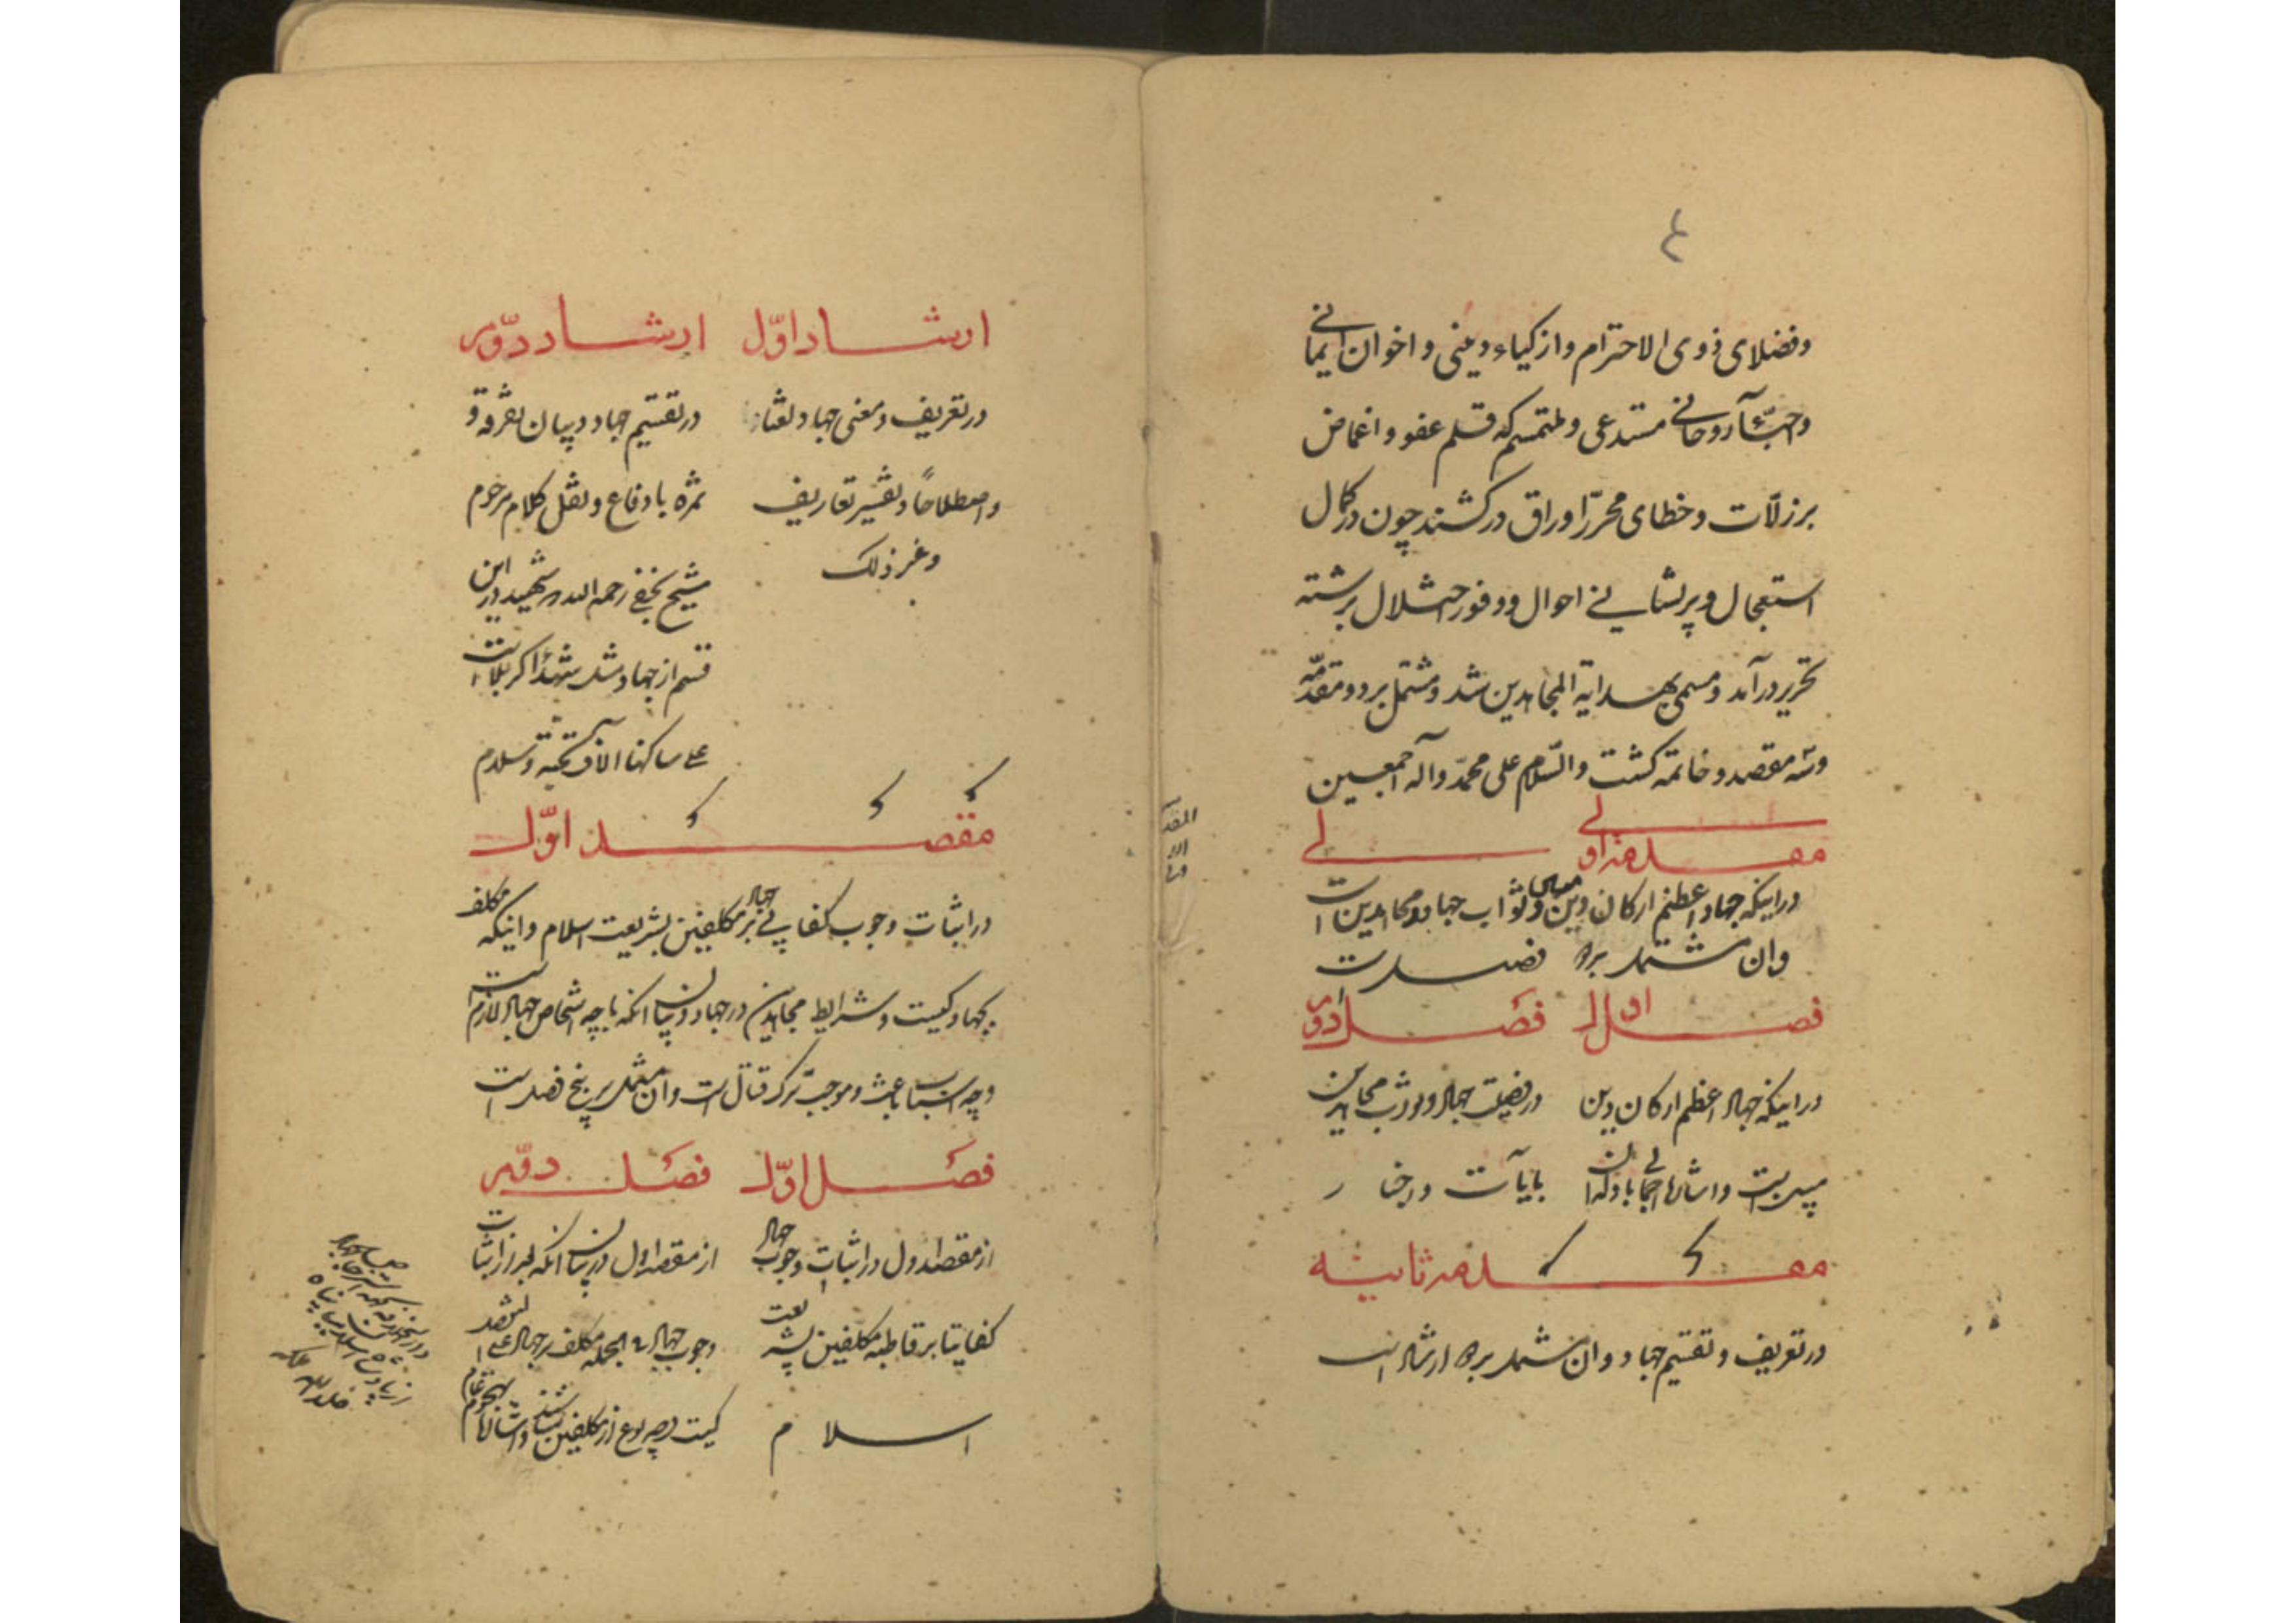 ٤
وفضلای ذوی الاحترام وازکیاء دینی و اخوان ایمانی
واحبّآء روحانی مستدعی وملتمسم که قلم عفو و اغماض
بر زلّات وخطای محرّر اوراق درکشند چون در کمال
استعجال وپریشانی احوال ووفور اختلال برشته
تحریر درآمد ومسمی بهدایة المجاهدین شد ومشتمل بر دو مقدّمه
وسه مقصد و خاتمه کشت والسّلام علی محمّد وآله اجمعین
مقدمه اولی
دراینکه جهاد اعظم ارکان دین وثواب جهاد ومجاهدین است
وان مشتمل بر فصل است
فصل اول فصل دوم
دراینکه جهاد اعظم ارکان دین
درفضیلت جهاد وثواب مجاهدین
بایات واخبار
مقدمه ثانیه
درتعریف وتقسیم جهاد وان مشتمل بر ارشاد است
ارشاد اوّل ارشاد دوّم
درتعریف ومعنی جهاد لغتا
واصطلاحاً وتفسیر تعاریف
وغیر ذلک
درتقسیم جهاد وبیان تفرقه و
ثمره با دفاع ونقل کلام مرحوم
شیخ نجفی رحمه الله شهید دراین
قسم از جهاد مثل شهدا کربلا است
علی ساکنها الاف تحیة وسلام
مقصد اوّل
دراثبات وجوب کفایی جهاد بر مکلفین بشریعت اسلام واینکه مکلف
بجهاد کیست وشرایط مجاهدین درجهاد وبیان انکه باچه اشخاص جهاد لازم است
وچه اسباب باعث وموجب ترک قتال است وان مشتمل بر پنج فصل است
فصل اوّل فصل دوّم
از مقصد اول دراثبات وجوب جهاد
کفایتا بر قاطبه مکلفین بشریعت
اسلام
از مقصد اول دربیان انکه بعد از اثبات
وجوب جهاد فی الجمله مکلف بر جهاد
کیست وچه نوع از مکلفین